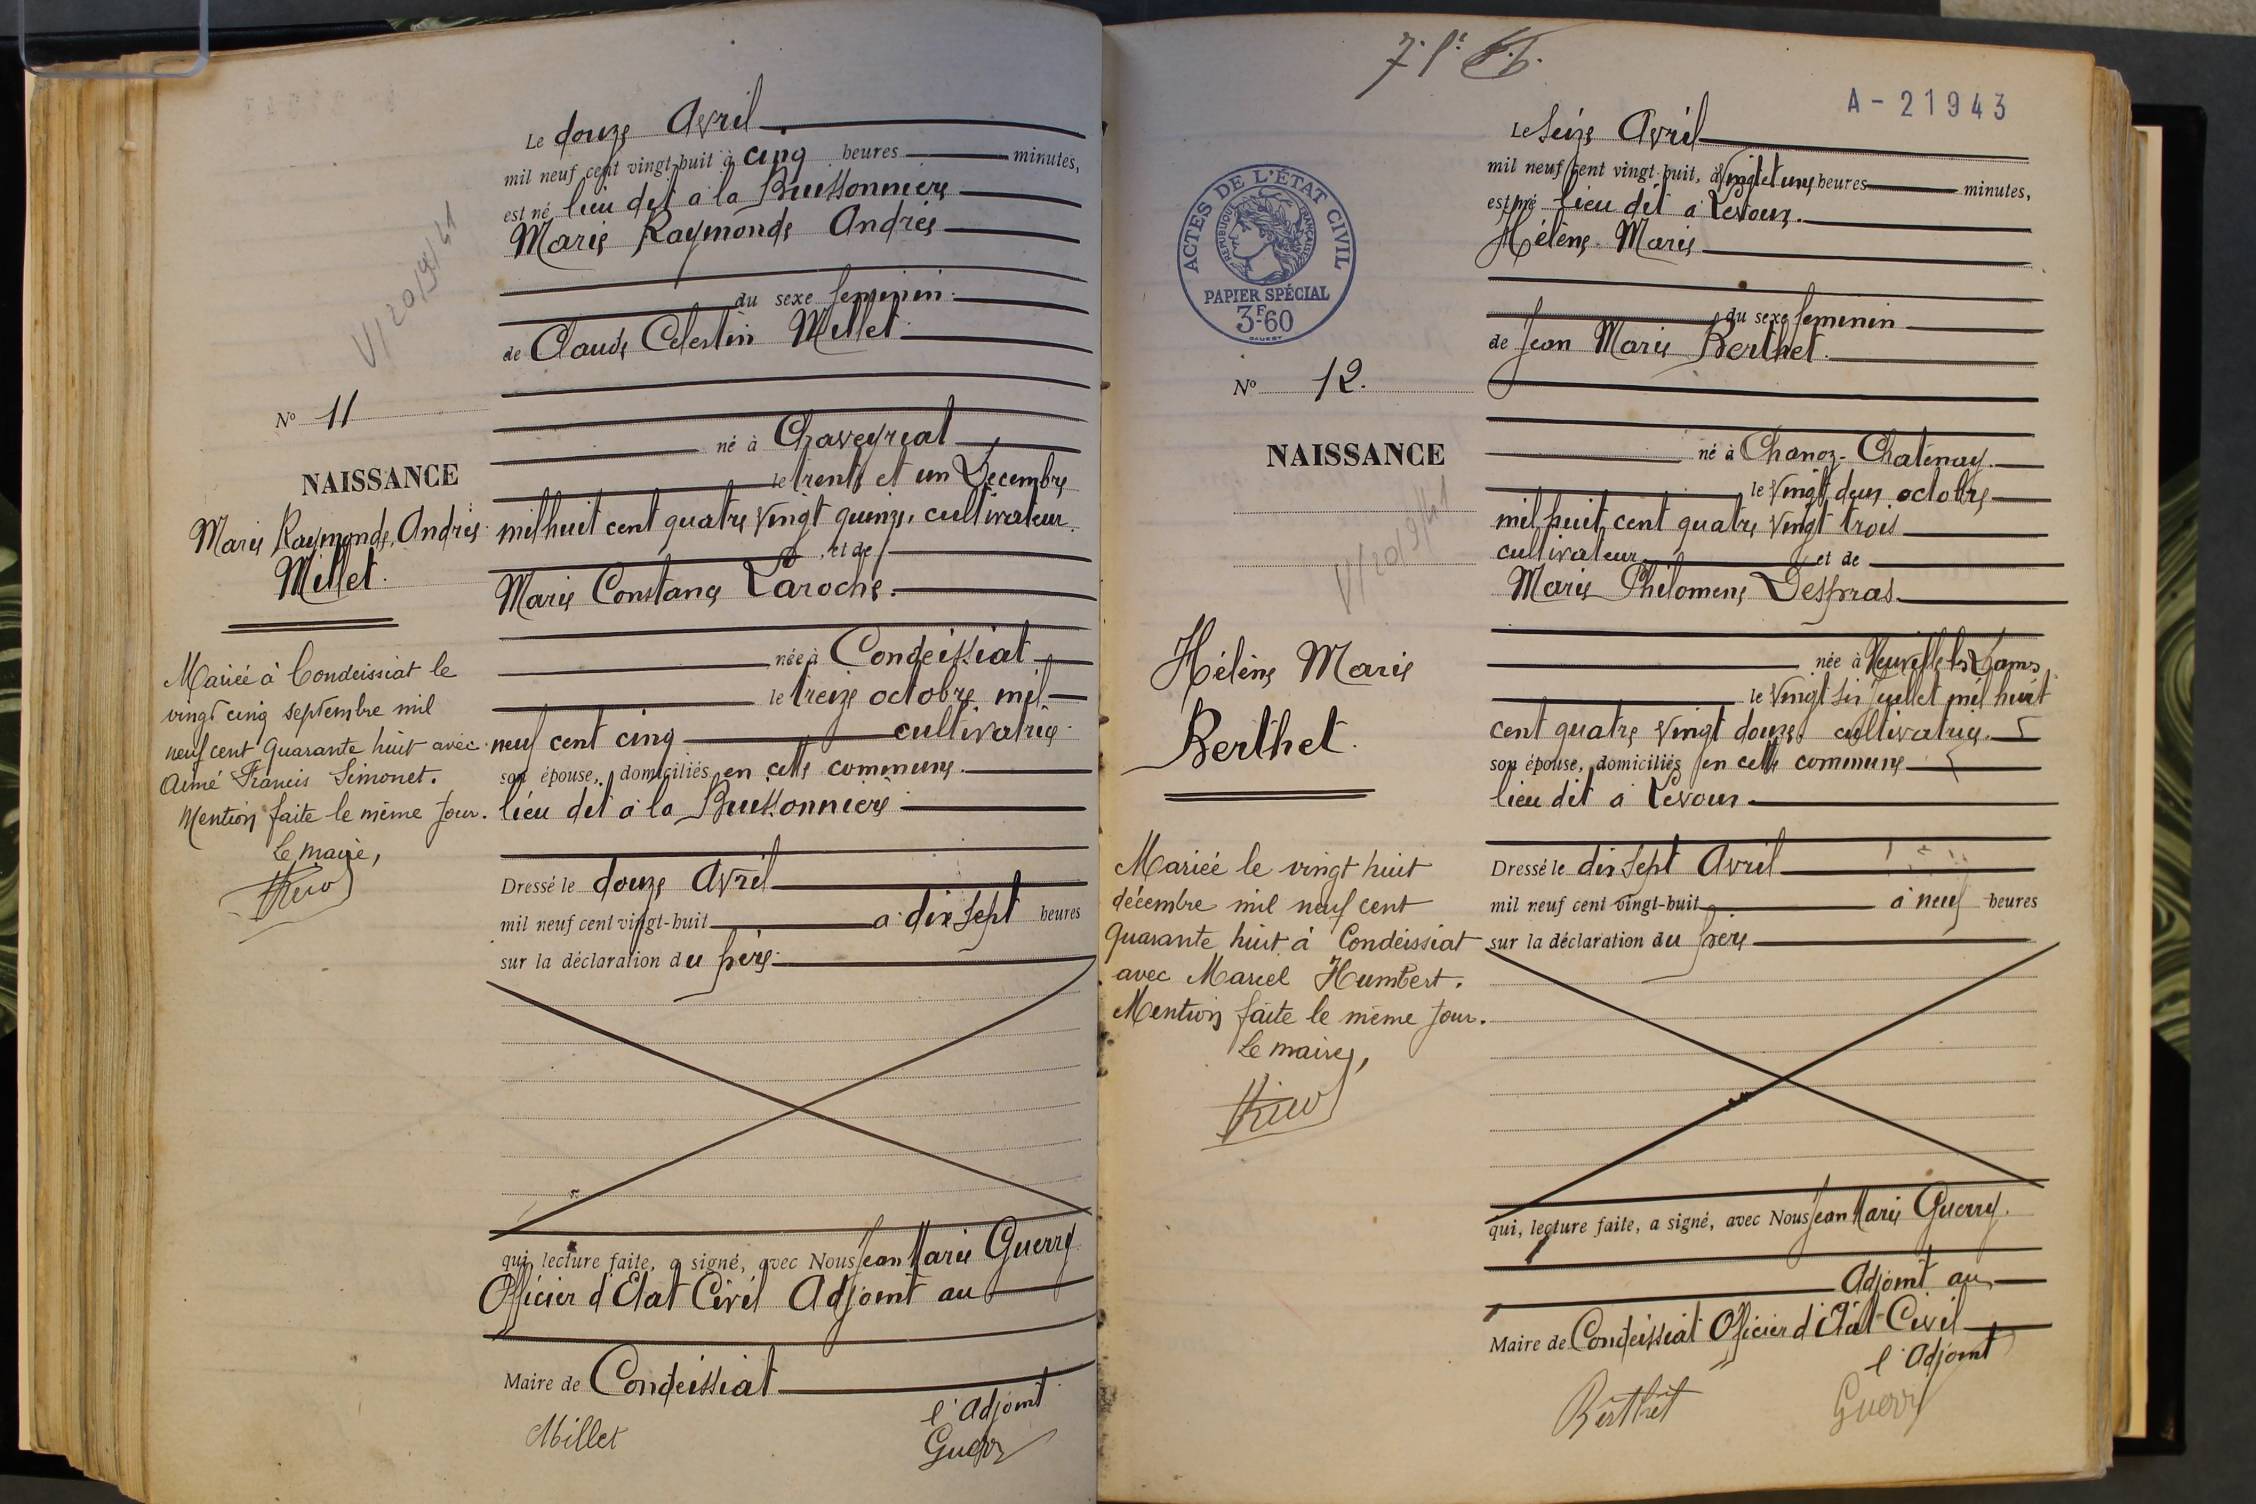 Le douze Avril
mil neuf cent vingt-huit à cinq heures minutes,
est né lieu dit à la Buissonnière
Marie Raymonde Andrée
du sexe feminin.
de Claude Celestin Millet
V/20/9/41
N° 11
NAISSANCE
Marie Raymonde Andrée
Millet.
né à Chaveyriat
le trente et un Decembre
mil huit cent quatre vingt quinze, cultivateur
et de
Marie Constance Laroche.
née à Condeissiat
le treize octobre mil
neuf cent cinq cultivatrice
son épouse, domiciliés en cette commune.
lieu dit à la Buissonnière
Mariée à Condeissiat le
vingt cinq septembre mil
neuf cent quarante huit avec
Aimé Francis Simonet.
Mention faite le même jour.
Le maire,
Dressé le douze Avril
mil neuf cent vingt-huit à dix sept heures
sur la déclaration du père
qui, lecture faite, a signé, avec Nous Jean Marie Guerry
Officier d'Etat Civil Adjoint au
Maire de Condeissiat
l'Adjoint
Millet
Guerry
A-21943
Le Seize Avril
mil neuf cent vingt-huit, à vingt et une heures minutes,
est né lieu dit à Levoux.
Hélène Marie
du sexe feminin
de Jean Marie Berthet.
ACTES DE L'ÉTAT CIVIL
RÉPUBLIQUE FRANÇAISE
PAPIER SPÉCIAL
3F60
N° 12.
NAISSANCE
V/20/9/41
Hélène Marie
Berthet.
né à Chanoz-Chatenay.
le vingt deux octobre
mil huit cent quatre vingt trois
cultivateur et de
Marie Philomène Despras
née à Neuville les Dames
le vingt six juillet mil huit
cent quatre vingt douze. cultivatrice.
son épouse, domiciliés en cette commune
lieu dit à Levoux
Mariée le vingt huit
décembre mil neuf cent
quarante huit à Condeissiat
avec Marcel Humbert.
Mention faite le même jour.
Le maire,
Dressé le dix sept Avril
mil neuf cent vingt-huit à neuf heures
sur la déclaration du père
qui, lecture faite, a signé, avec Nous Jean Marie Guerry.
Adjoint au
Maire de Condeissiat Officier d'Etat-Civil
l'Adjoint
Berthet
Guerry